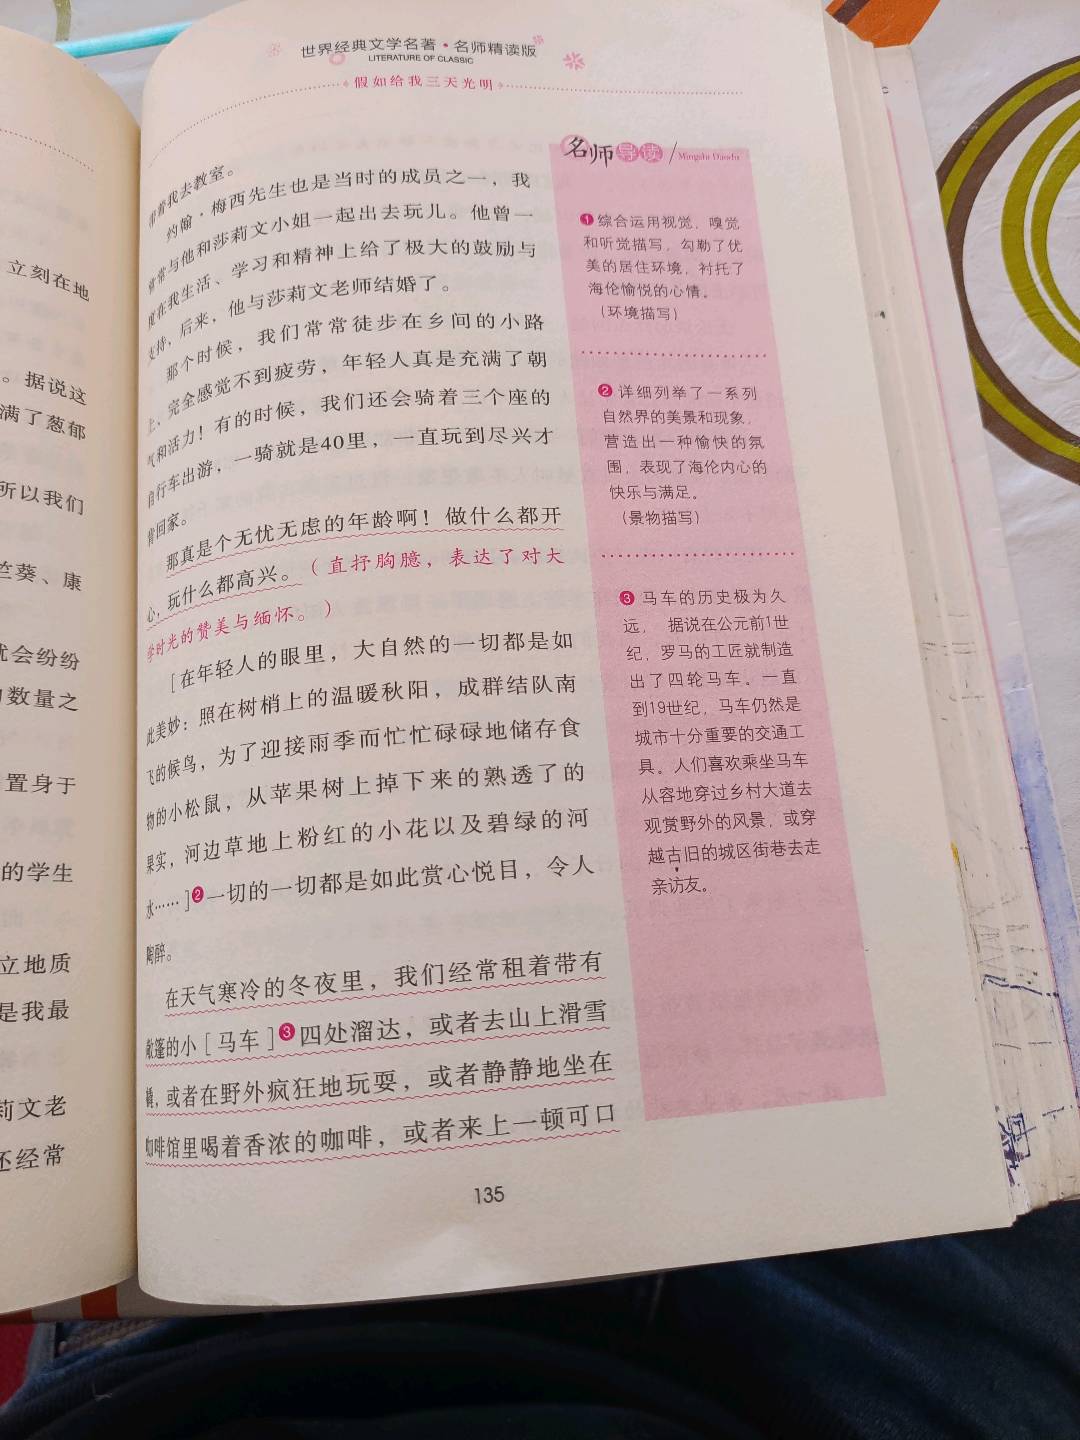 立刻在地
。据说这
满了葱郁
所以我们
竺葵、康
就会纷纷
数量之
置身于
的学生
立地质
是我最
莉文老
还经常
世界经典文学名著·名师精读版
LITERATURE OF CLASSIC
假如给我三天光明
带着我去教室。
约翰·梅西先生也是当时的成员之一，我
常常与他和莎莉文小姐一起出去玩儿。他曾一
度在我生活、学习和精神上给了极大的鼓励与
支持，后来，他与莎莉文老师结婚了。
那个时候，我们常常徒步在乡间的小路
上、完全感觉不到疲劳，年轻人真是充满了朝
气和活力！有的时候，我们还会骑着三个座的
自行车出游，一骑就是40里，一直玩到尽兴才
肯回家。
那真是个无忧无虑的年龄啊！做什么都开
心，玩什么都高兴。（直抒胸臆，表达了对大
学时光的赞美与缅怀。）
［在年轻人的眼里，大自然的一切都是如
此美妙：照在树梢上的温暖秋阳，成群结队南
飞的候鸟，为了迎接雨季而忙忙碌碌地储存食
物的小松鼠，从苹果树上掉下来的熟透了的
果实，河边草地上粉红的小花以及碧绿的河
水……］❷一切的一切都是如此赏心悦目，令人
陶醉。
在天气寒冷的冬夜里，我们经常租着带有
敞篷的小［马车］❸四处溜达，或者去山上滑雪
橇，或者在野外疯狂地玩耍，或者静静地坐在
咖啡馆里喝着香浓的咖啡，或者来上一顿可口
135
名师导读/Mingshi Daodu
❶综合运用视觉，嗅觉
和听觉描写，勾勒了优
美的居住环境，衬托了
海伦愉悦的心情。
（环境描写）
❷详细列举了一系列
自然界的美景和现象，
营造出一种愉快的氛
围，表现了海伦内心的
快乐与满足。
（景物描写）
❸马车的历史极为久
远， 据说在公元前1世
纪，罗马的工匠就制造
出了四轮马车。一直
到19世纪，马车仍然是
城市十分重要的交通工
具。人们喜欢乘坐马车
从容地穿过乡村大道去
观赏野外的风景，或穿
越古旧的城区街巷去走
亲访友。